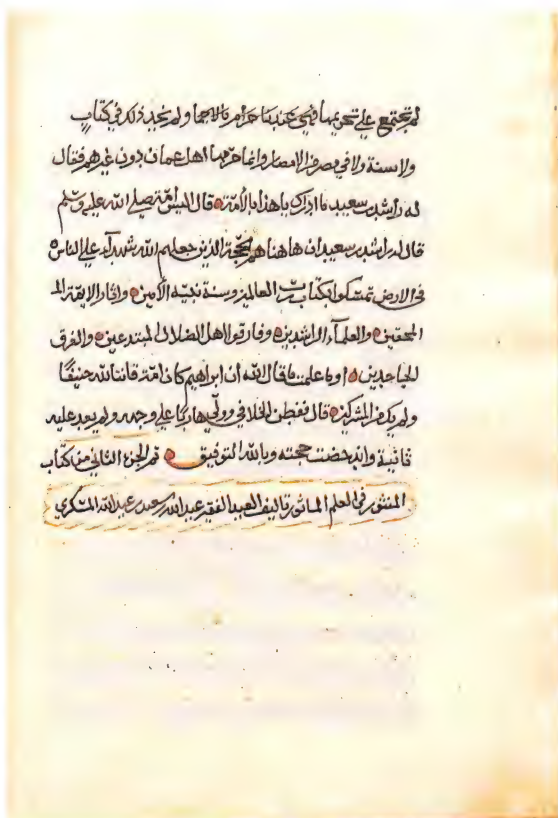 لم تجتمع على تحريمها فهي عندنا حرام بالاجماع ولم نجد ذلك في كتاب
ولا سنة ولا في مصر من الامصار وانما حرمها اهل عمان دون غيرهم فقال
له راشد بن سعيد ما ادراك يا هذا بالأمة قال اليس أمته صلى الله عليه وسلم
قال له راشد بن سعيد ان هاهنا هم الحجة الذين جعلهم الله شهدآء على الناس
فى الارض تمسكوا بكتاب رب العالمين وسنة نبيه الأمين واثار الايمة
المحقين والعلمآء الراشدين وفارقوا اهل الضلال المبتدعين والفرق
الجاحدين اوما علمت ما قال الله ان ابراهيم كان امّة قانتا لله حنيفًا
ولم يك من المشركين قال فقطن الخلافي وولّى هاربًا على وجهه ولم يعد عليه
ثانية واندحضت حجته وبالله التوفيق تم الجزء الثاني من كتاب
المنثور في العلم المأثور تاليف العبد الفقير عبد الله بن سعيد بن عبد الله